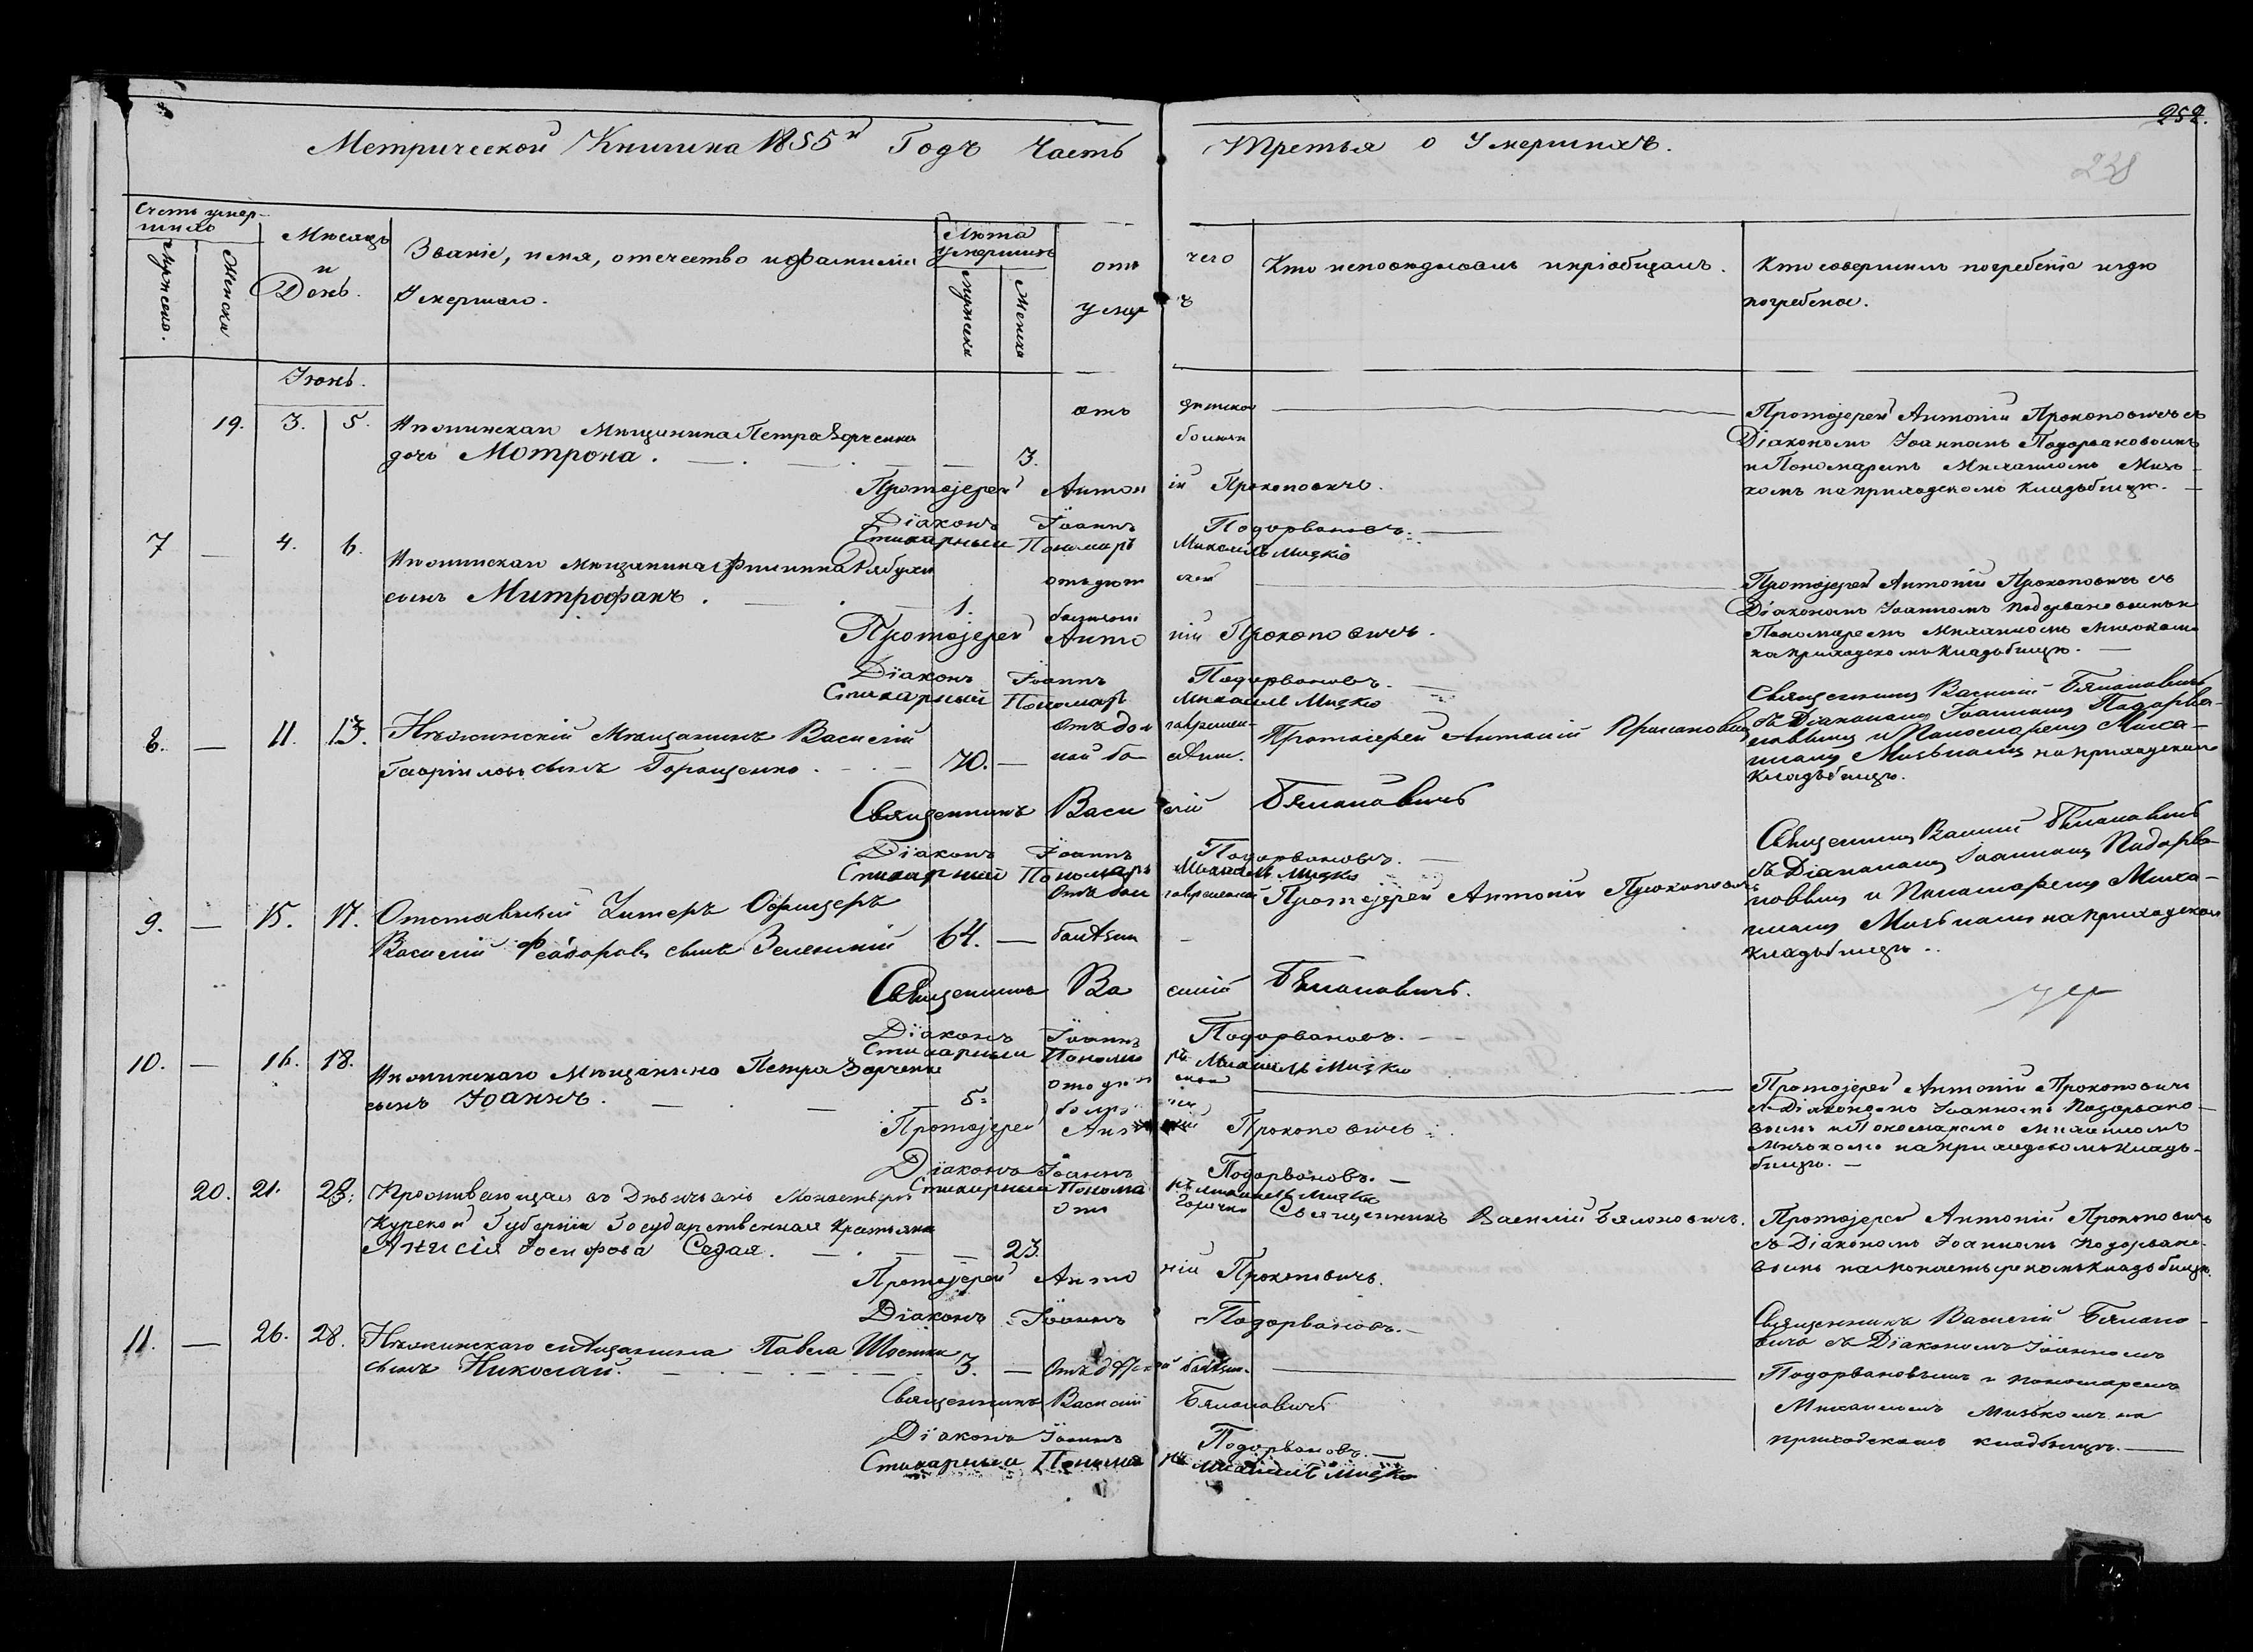 252.
238
Метрической Книги на 1855й Годъ Часть Третья о Умершихъ.
Счетъ умер-
шихъ
Мужеска.
Женска.
Мѣсяцъ
и
День.
Званіе, имя, отечество и фамилія
Умершаго.
Лѣта
умершихъ
мужеска
Женска
отъ чего
умеръ
Кто исповѣдывалъ и пріобщалъ.
Кто совершилъ погребеніе и гдѣ
погребены.
Іюнь.
19. 3. 5. Нѣжинскаго Мѣщанина Петра Зорченка
дочь Мотрона. 3.
отъ дѣтской
болѣзни
Протоіерей Антоній Прокоповичъ съ
Діакономъ Іоанномъ Подорвановымъ
и Пономаремъ Михаиломъ Мизь-
комъ на приходскомъ кладбищѣ.
Протоіерей Антоній Прокоповичъ.
Діаконъ Іоаннъ Подорвановъ.
Стихарный Пономарь Михаилъ Мизко
7 — 4. 6. Нѣжинскаго мѣщанина Филиппа Рябухи
сынъ Митрофанъ. 1.
отъ дѣтской
болѣзни
Протоіерей Антоній Прокоповичъ съ
Діакономъ Іоанномъ Подорвановымъ и
Пономаремъ Михаиломъ Мизькомъ
на приходскомъ кладбищѣ.
Протоіерей Антоній Прокоповичъ.
Діаконъ Іоаннъ Подорвановъ.
Стихарный Пономарь Михаилъ Мизко
8. — 11. 13. Нѣжинскій Мѣщанинъ Василій
Гавріиловъ сынъ Горощенко. 70. —
Отъ долговремен-
ной болѣзни.
Протоіерей Антоній Прокоповичъ
Священникъ Василій Бѣлоновичъ
съ Діакономъ Іоанномъ Подорва-
новымъ и Пономаремъ Миха-
иломъ Мизькомъ на приходскомъ
кладбищѣ.
Священникъ Василій Бѣлоновичъ
Діаконъ Іоаннъ Подорвановъ.
Стихарный Пономарь Михаилъ Мизко
9. — 15. 17. Отставный Унтеръ Офицеръ
Василій Феодоровъ сынъ Зеленскій 64. —
Отъ долговременной
болѣзни
Протоіерей Антоній Прокоповичъ
Священникъ Василій Бѣлоновичъ
съ Діакономъ Іоанномъ Подорва-
новымъ и Пономаремъ Миха-
иломъ Мизькомъ на приходскомъ
кладбищѣ.
Священникъ Василій Бѣлоновичъ.
Діаконъ Іоаннъ Подорвановъ.
Стихарный Пономарь Михаилъ Мизко
10. — 16. 18. Нѣжинскаго Мѣщанина Петра Зорченка
сынъ Іоаннъ. 5.
отъ дѣтской
болѣзни
Протоіерей Антоній Прокоповичъ
съ Діакономъ Іоанномъ Подорвано-
вымъ и Пономаремъ Михаиломъ
Мизькомъ на приходскомъ клад-
бищѣ.
Протоіерей Антоній Прокоповичъ.
Діаконъ Іоаннъ Подорвановъ.
Стихарный Пономарь Михаилъ Мизко
20. 21. 23. Проживающая въ Дѣвичьемъ Монастырѣ
Курской Губерніи Государственная Крестьянка
Анисія Іосифова Седая. 23.
Отъ горячки
Священникъ Василій Бѣлоновичъ.
Протоіерей Антоній Прокоповичъ
съ Діакономъ Іоанномъ Подорвано-
вымъ на монастырскомъ кладбищѣ.
Протоіерей Антоній Прокоповичъ.
Діаконъ Іоаннъ Подорвановъ.
11. — 26. 28. Нѣжинскаго мѣщанина Павла Шостки
сынъ Николай. 3. — Отъ дѣтской болѣзни.
Священникъ Василій Бѣлоно-
вичъ съ Діакономъ Іоанномъ
Подорвановымъ и пономаремъ
Михаиломъ Мизькомъ на
приходскомъ кладбищѣ.
Священникъ Василій Бѣлоновичъ
Діаконъ Іоаннъ Подорвановъ.
Стихарный Пономарь Михаилъ Мизко